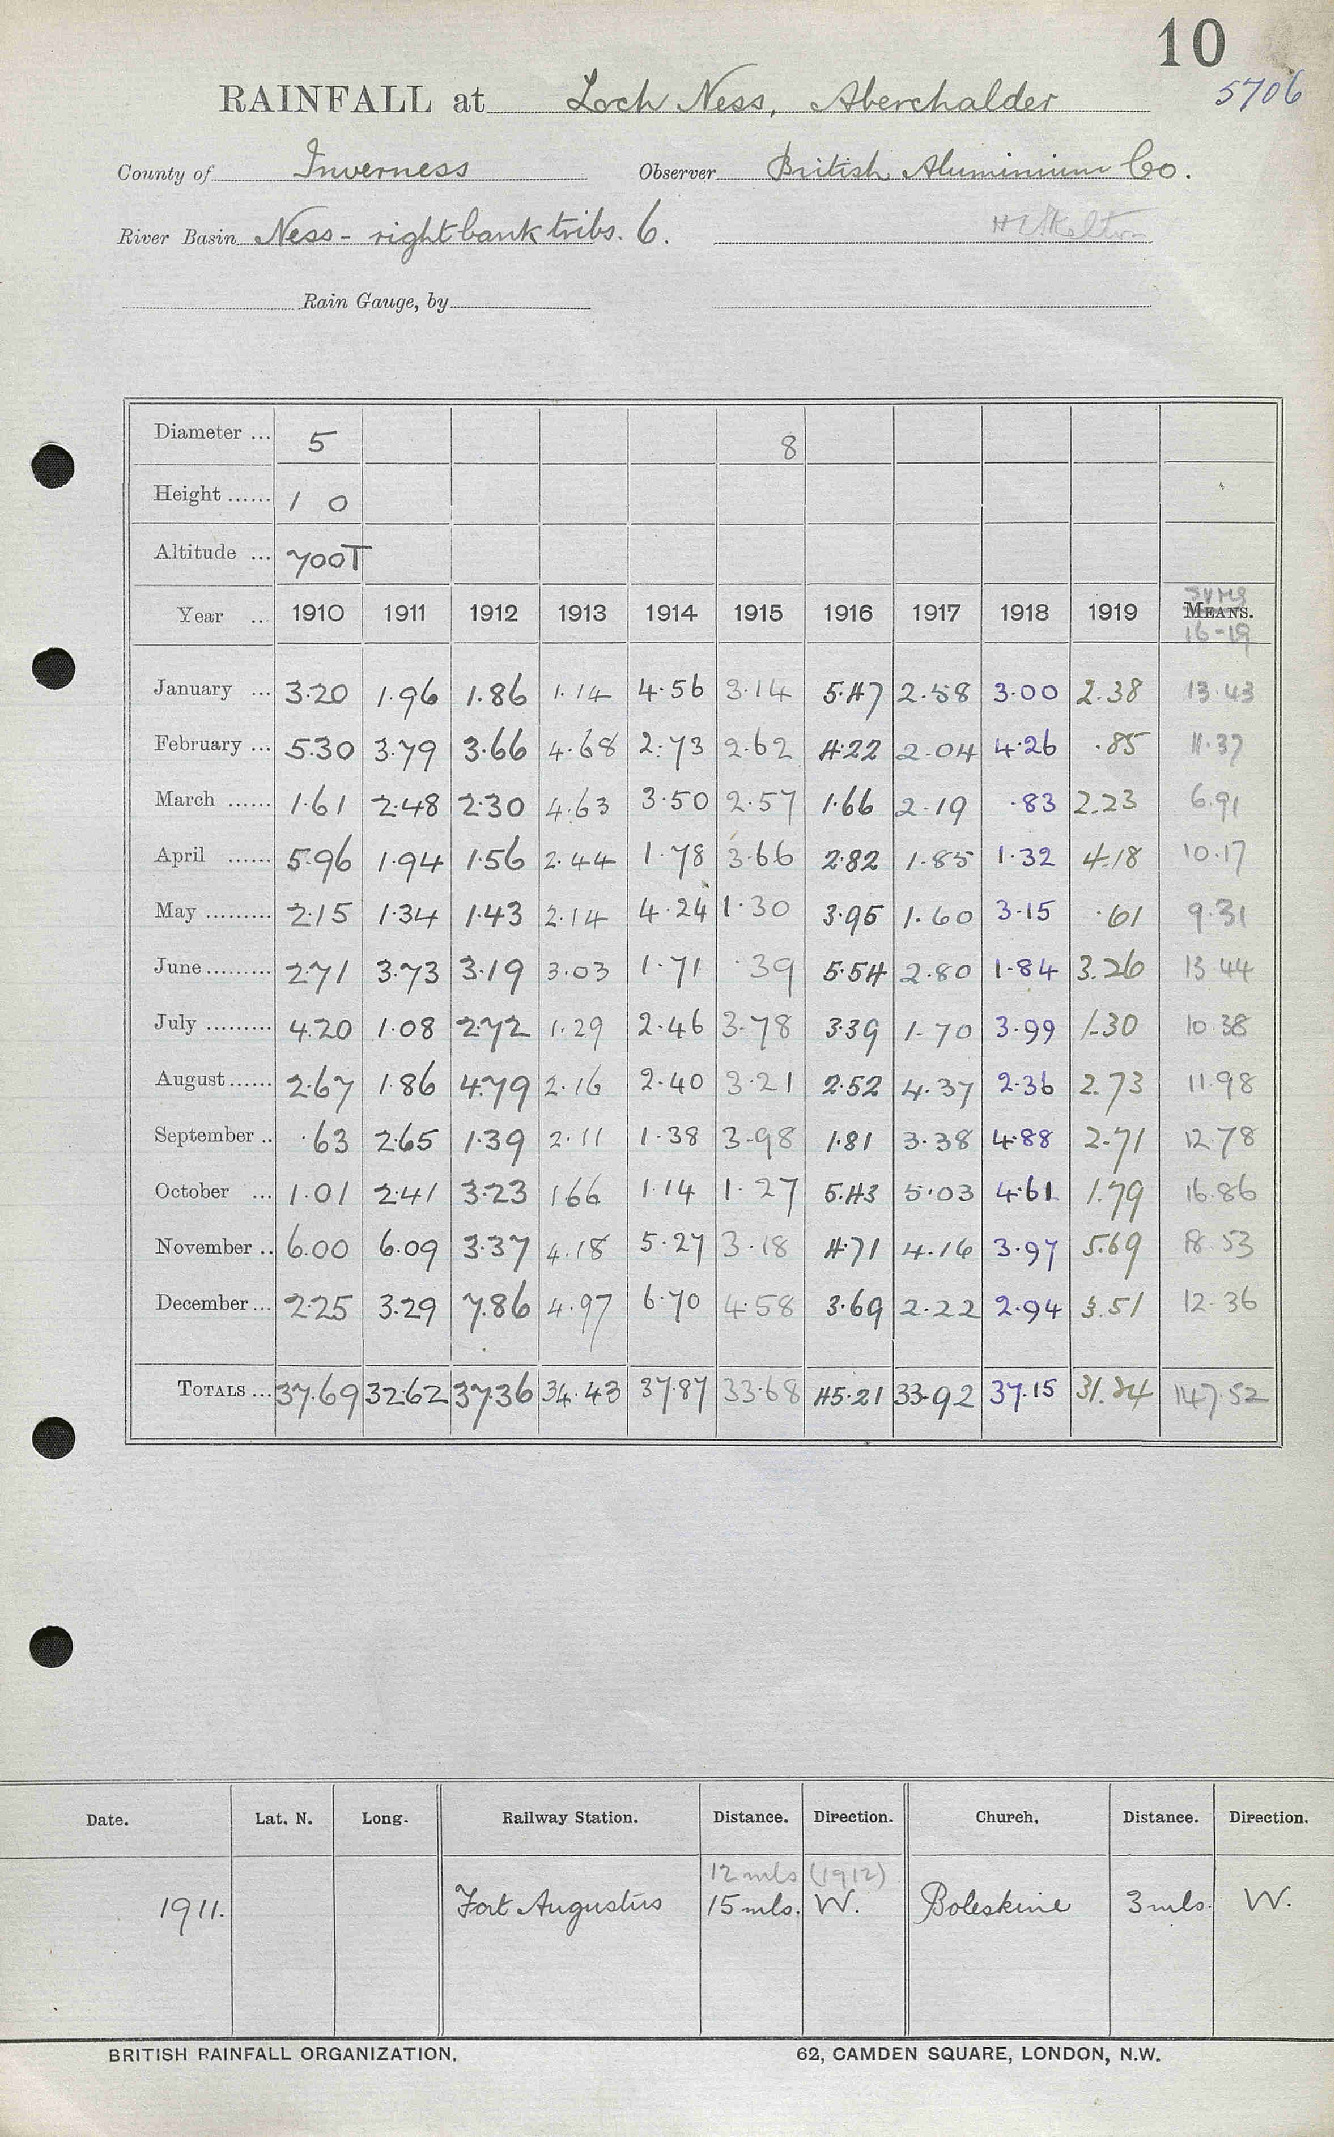 10
RAINFALL at Loch Ness, Aberchalder 5706
County of Inverness Observer British Aluminium Co.
River Basin Ness - right bank tribs. 6. H Skelton
Rain Gauge, by
Diameter ... 5 8
Height ...... 1 0
Altitude ... 700T
SUMS
Year ... 1910 1911 1912 1913 1914 1915 1916 1917 1918 1919 MEANS.
16-19
January ... 3.20 1.96 1.86 1.14 4.56 3.14 5.47 2.58 3.00 2.38 13.43
February ... 5.30 3.79 3.66 4.68 2.73 2.62 4.22 2.04 4.26 .85 11.37
March ...... 1.61 2.48 2.30 4.63 3.50 2.57 1.66 2.19 .83 2.23 6.91
April ...... 5.96 1.94 1.56 2.44 1.78 3.66 2.82 1.85 1.32 4.18 10.17
May ......... 2.15 1.34 1.43 2.14 4.24 1.30 3.95 1.60 3.15 .61 9.31
June ......... 2.71 3.73 3.19 3.03 1.71 .39 5.54 2.80 1.84 3.26 13 44
July ......... 4.20 1.08 2.72 1.29 2.46 3.78 3.39 1.70 3.99 1.30 10.38
August ...... 2.67 1.86 4.79 2.16 2.40 3.21 2.52 4.37 2.36 2.73 11.98
September .. .63 2.65 1.39 2.11 1.38 3.98 1.81 3.38 4.88 2.71 12.78
October ... 1.01 2.41 3.23 1 66 1.14 1.27 5.43 5.03 4.61 1.79 16.86
November .. 6.00 6.09 3.37 4.18 5.27 3.18 4.71 4.16 3.97 5.69 18.53
December ... 2.25 3.29 7.86 4.97 6.70 4.58 3.69 2.22 2.94 3.51 12.36
TOTALS ... 37.69 32.62 37.36 34.43 37.87 33.68 45.21 33.92 37.15 31.34 147.52
Date. Lat. N. Long. Railway Station. Distance. Direction. Church. Distance. Direction.
12 mls (1912)
1911. Fort Augustus 15 mls. W. Boleskine 3 mls. W.
BRITISH RAINFALL ORGANIZATION. 62, CAMDEN SQUARE, LONDON, N.W.